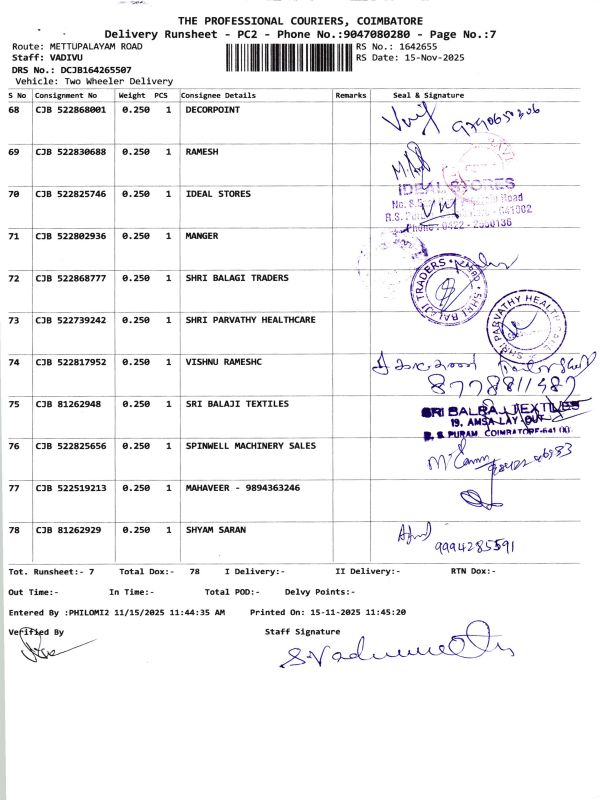 THE PROFESSIONAL COURIERS, COIMBATORE
Delivery Runsheet - PC2 - Phone No.:9047080280 - Page No.:7
Route: METTUPALAYAM ROAD
Staff: VADIVU
DRS No.: DCJB164265507
Vehicle: Two Wheeler Delivery
RS No.: 1642655
RS Date: 15-Nov-2025
S No Consignment No Weight PCS Consignee Details Remarks Seal & Signature
68 CJB 522868001 0.250 1 DECORPOINT
69 CJB 522830688 0.250 1 RAMESH
70 CJB 522825746 0.250 1 IDEAL STORES
IDEAL STORES
71 CJB 522802936 0.250 1 MANGER
72 CJB 522868777 0.250 1 SHRI BALAGI TRADERS
SHRI BALAJI TRADERS
73 CJB 522739242 0.250 1 SHRI PARVATHY HEALTHCARE
SHRI PARVATHY HEALTH
74 CJB 522817952 0.250 1 VISHNU RAMESHC
8778811487
75 CJB 81262948 0.250 1 SRI BALAJI TEXTILES
SRI BALAJI TEXTILES
19, AMSA LAY-OUT
R. S PURAM, COIMBATORE-641
76 CJB 522825656 0.250 1 SPINWELL MACHINERY SALES
77 CJB 522519213 0.250 1 MAHAVEER - 9894363246
78 CJB 81262929 0.250 1 SHYAM SARAN
9994285591
Tot. Runsheet:- 7 Total Dox:- 78 I Delivery:- II Delivery:- RTN Dox:-
Out Time:- In Time:- Total POD:- Delvy Points:-
Entered By :PHILOMI2 11/15/2025 11:44:35 AM Printed On: 15-11-2025 11:45:20
Verified By Staff Signature